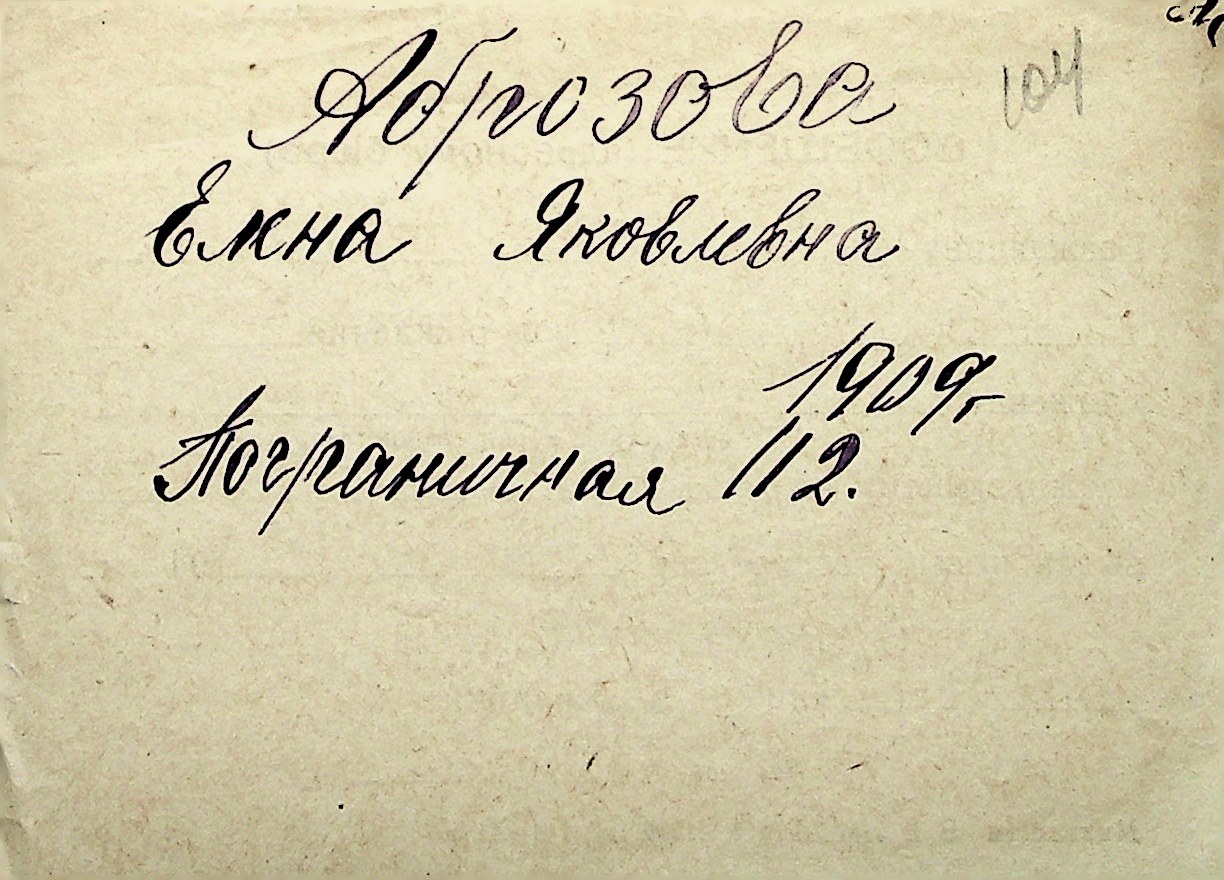 Аброзова
104
Елена Яковлевна
1909г
Пограничная 112.